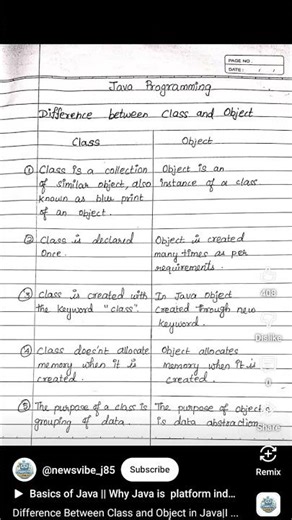 PAGE NO:
DATE: / /
Java Programming
Difference between Class and Object
Class
Object
① Class is a collection
of similar object, also
known as blue print
of an object.
Object is an
instance of a class
② Class is declared
Once.
Object is created
many times as per
requirements.
③ Class is created with
the keyword "class".
In Java Object
created through new
keyword.
④ Class does'nt allocate
memory when it is
created.
Object allocates
memory when it is
created.
⑤ The purpose of a class is
grouping of data.
The purpose of object
is data abstraction.
408
Dislike
0
Share
Remix
@newsvibe_j85 Subscribe
Basics of Java || Why Java is platform ind...
Difference Between Class and Object in Java|I ...